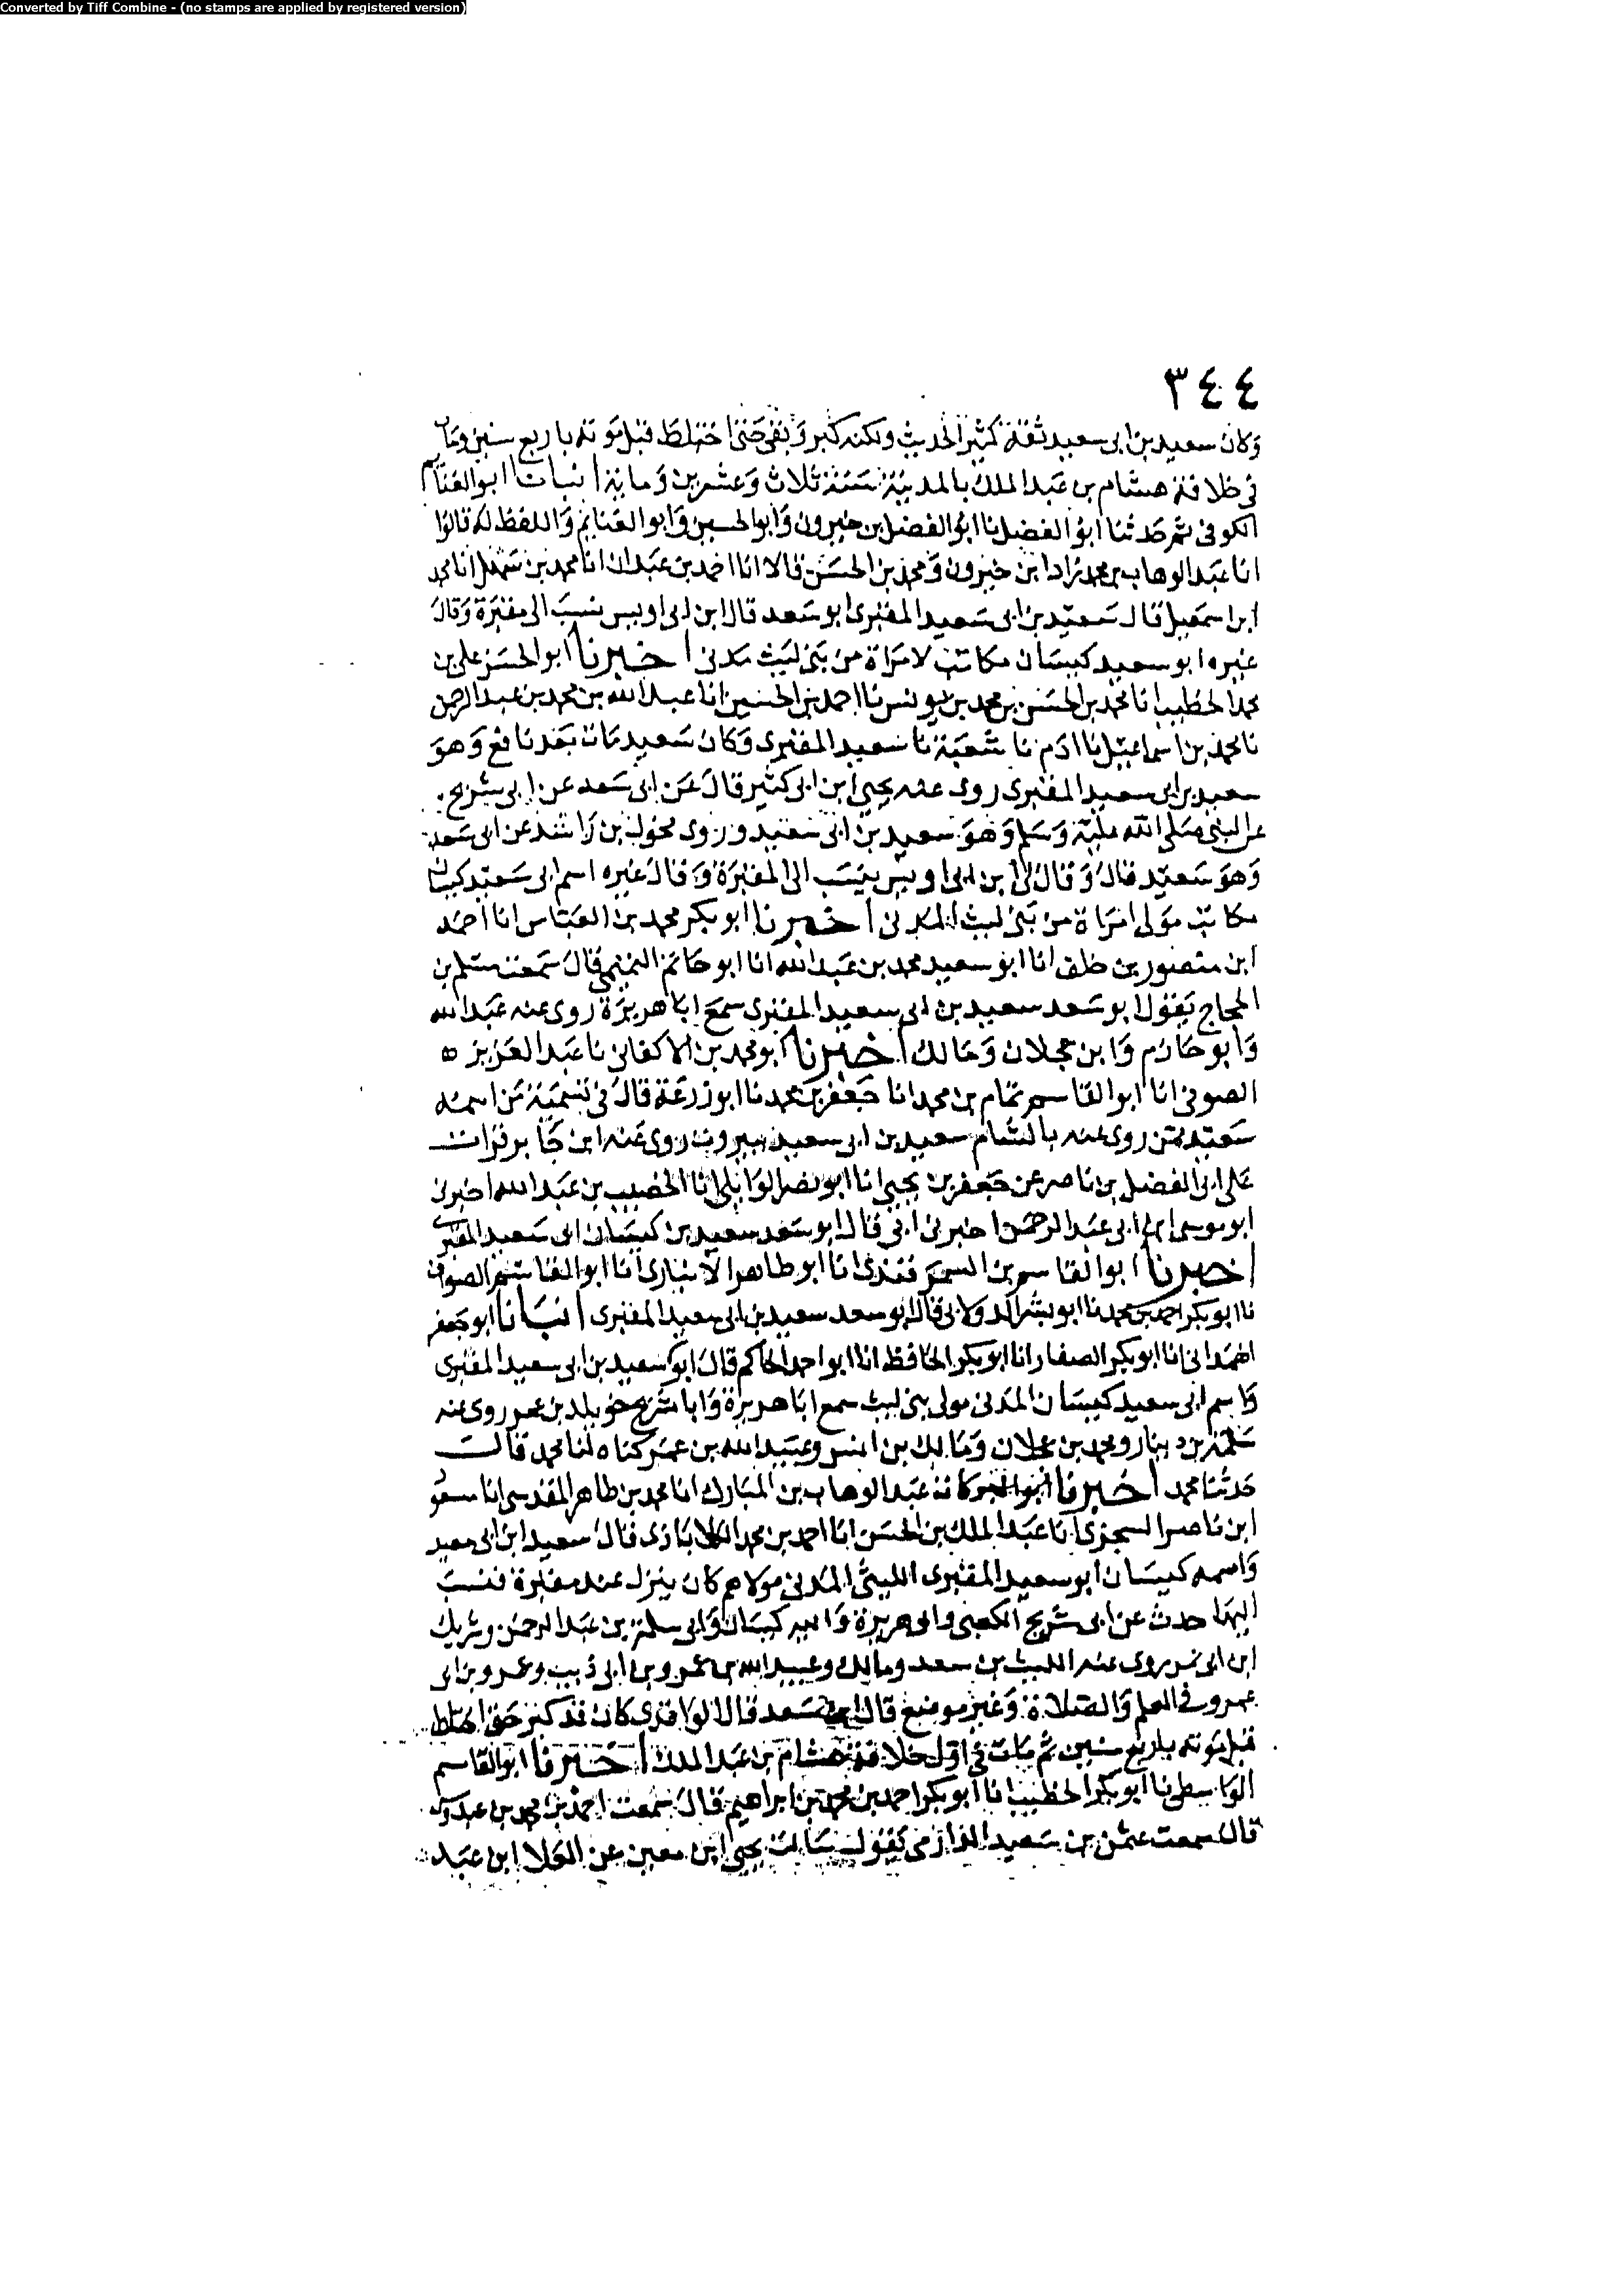 Converted by Tiff Combine - (no stamps are applied by registered version)
٣٤٤
وكان سعيد بن ابى سعيد ثقة كثير الحديث ولكنه كبر وبقى حتى اختلط قبل موته باربع سنين ومات
فى خلافة هشام بن عبد الملك بالمدينة سنة ثلاث وعشرين وماية انبانا ابو الغنايم
الكوفى ثم حدثنا ابو الفضل نا ابو الفضل بن خيرون وابو الحسين وابو الغنايم واللفظ له قالوا
انا عبد الوهاب بن محمد زاد ابن خيرون ومحمد بن الحسن قالا انا احمد بن عبدان انا محمد بن سهل انا محمد
ابن اسمعيل قال سعيد بن ابى سعيد المقبرى ابو سعد قال ابن ابى اويس ينسب الى مقبرة وقال
غيره ابو سعيد كيسان مكاتب لامراة من بنى ليث مدنى اخبرنا ابو الحسن على بن
محمد الخطيب انا محمد بن الحسن بن محمد بن يونس نا احمد بن الحسين انا عبد الله بن محمد بن عبد الرحمن
نا محمد بن اسماعيل نا ادم نا شعبة نا سعيد المقبرى وكان سعيد مات بعد نافع وهو
سعيد بن ابى سعيد المقبرى روى عنه يحيى ابن ابى كثير قال عن ابى سعد عن ابى شريح
عن النبى صلى الله عليه وسلم وهو سعيد بن ابى سعيد وروى مخول بن راشد عن ابى سعد
وهو سعيد قال وقال لى ابن ابى اويس ينسب الى المقبرة وقال غيره اسم ابى سعيد كيسان
مكاتب مولى امراة من بنى ليث المدنى اخبرنا ابو بكر محمد بن العباس انا احمد
ابن منصور بن خلف انا ابو سعيد محمد بن عبد الله انا ابو حاتم التميمى قال سمعت مسلم بن
الحجاج يقول ابو سعد سعيد بن ابى سعيد المقبرى سمع ابا هريرة روى عنه عبد الله
وابو حازم وابن عجلان ومالك اخبرنا ابو محمد بن الاكفانى نا عبد العزيز
الصوفى انا ابو القاسم تمام بن محمد انا جعفر بن محمد نا ابو زرعة قال فى تسمية من اسمه
سعيد ممن روى عنه بالشام سعيد بن ابى سعيد ببيروت روى عنه ابن جابر قرات
على ابى الفضل بن ناصر عن جعفر بن يحيى انا ابو نصر الوايلى انا الخصيب بن عبد الله اخبرنى
ابو موسى ابن ابى عبد الرحمن اخبرنى ابى قال ابو سعد سعيد بن كيسان ابى سعيد المقبرى
اخبرنا ابو القاسم بن السمرقندى انا ابو طاهر الانبارى انا ابو القاسم الصواف
نا ابو بكر احمد بن محمد نا ابو بشر الدولابى قال ابو سعد سعيد بن ابى سعيد المقبرى انبانا ابو جعفر
الهمدانى انا ابو بكر الصفار انا ابو بكر الحافظ انا ابو احمد الحاكم قال ابو سعيد بن ابى سعيد المقبرى
واسم ابى سعيد كيسان المدنى مولى بنى ليث سمع ابا هريرة وابا شريح خويلد بن عمرو روى عنه
سلمة بن دينار ومحمد بن عجلان ومالك بن انس وعبيد الله بن عمر كناه لنا محمد قالت
حدثنا محمد اخبرنا ابو البركات عبد الوهاب بن المبارك انا محمد بن طاهر المقدسى انا مسعود
ابن ناصر السجزى نا عبد الملك بن الحسن انا احمد بن محمد الكلاباذى قال سعيد ابن ابى سعيد
واسمه كيسان ابو سعيد المقبرى الليثى المدنى مولاهم كان ينزل عند مقبرة فنسب
اليها حدث عن ابى شريح الكعبى وابى هريرة وابيه كيسان وابى سلمة بن عبد الرحمن وشريك
ابن ابى نمر روى عنه الليث بن سعد ومالك وعبيد الله بن عمر وبن ابى ذيب وعمرو بن ابى
عمرو فى العلم والصلاة وغير موضع قال ابن سعد قال الواقدى كان قد كبر حتى اختلط
قبل موته باربع سنين ثم مات فى اول خلافة هشام بن عبد الملك اخبرنا ابو القاسم
الواسطى نا ابو بكر الخطيب انا ابو بكر احمد بن محمد بن ابراهيم قال سمعت احمد بن محمد بن عبدوس
قال سمعت عثمن بن سعيد الدارمى يقول سالت يحيى ابن معين عن العلا ابن عبد